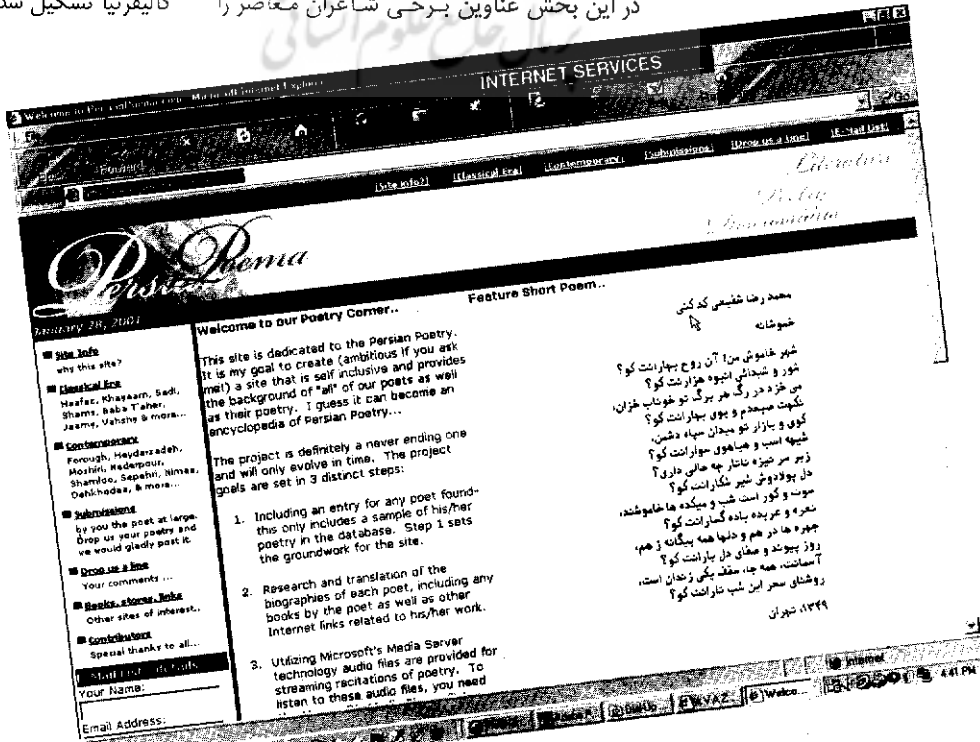 در این بخش عناوین برخی شاعران معاصر را
کالیفرنیا تشکیل شد
INTERNET SERVICES
[Site Info?] [Classical Era] [Contemporary] [Submissions] [Drop us a line] [E-Mail List]
Literature
Poetry
Persian Poema
January 28, 2001
Site Info
why this site?
Classical Era
Haafez, Khayaam, Sadi,
Shams, Baba Taher,
Jaame, Vahshe & more...
Contemporary
Forough, Heydarzadeh,
Moshiri, Naderpour,
Shamloo, Sepehri, Nimaa,
Dehkhodaa, & more...
Submissions
by you the poet at large.
Drop us your poetry and
we would gladly post it.
Drop us a line
Your comments ...
Books, stores, links
Other sites of interest..
Contributors
Special thanks to all...
Your Name:
Email Address:
Welcome to our Poetry Corner..
This site is dedicated to the Persian Poetry.
It is my goal to create (ambitious if you ask
me!) a site that is self inclusive and provides
the background of "all" of our poets as well
as their poetry. I guess it can become an
encyclopedia of Persian Poetry...
The project is definitely a never ending one
and will only evolve in time. The project
goals are set in 3 distinct steps:
1. Including an entry for any poet found-
this only includes a sample of his/her
poetry in the database. Step 1 sets
the groundwork for the site.
2. Research and translation of the
biographies of each poet, including any
books by the poet as well as other
Internet links related to his/her work.
3. Utilizing Microsoft's Media Server
technology audio files are provided for
streaming recitations of poetry. To
listen to these audio files, you need
Feature Short Poem..
محمد رضا شفیعی کدکنی
خموشانه
شهر خاموش من! آن روح بهارانت کو؟
شور و شیدائی انبوه هزارانت کو؟
می خزد در رگ هر برگ تو خوناب خزان،
نکهت صبحدم و بوی بهارانت کو؟
کوی و بازار تو میدان سپاه دشمن،
شیهه اسب و هیاهوی سوارانت کو؟
زیر سر نیزه تاتار چه حالی داری؟
دل پولادوش شیر شکارانت کو؟
سوت و کور است شب و میکده ها خاموشند،
نعره و عربده باده گسارانت کو؟
چهره ها در هم و دلها همه بیگانه ز هم،
روز پیوند و صفای دل یارانت کو؟
آسمانت، همه جا، سقف یکی زندان است،
روشنای سحر این شب تارانت کو؟
۱۳۴۹، تهران
Internet
4:41 PM